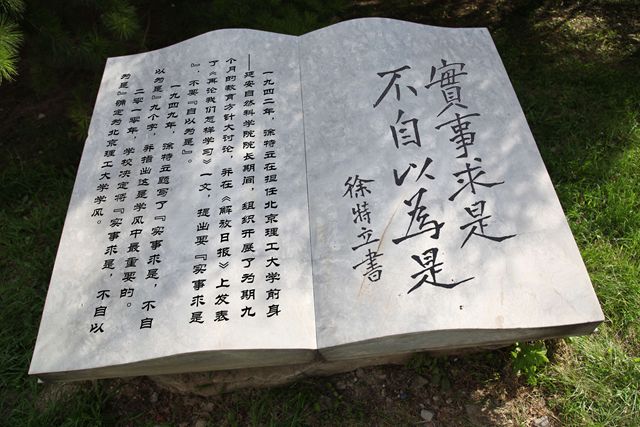 實事求是
不自以為是
徐特立書
一九四二年，徐特立在担任北京理工大学前身
—延安自然科学院院长期间，组织开展了为期九
个月的教育方针大讨论，并在《解放日报》上发表
了《再论我们怎样学习》一文，提出要『实事求是
』，不要『自以为是』。
一九四九年，徐特立题写了『实事求是，不自
以为是』九个字，并指出这是学风中最重要的。
二零一零年，学校决定将『实事求是，不自以
为是』确定为北京理工大学学风。